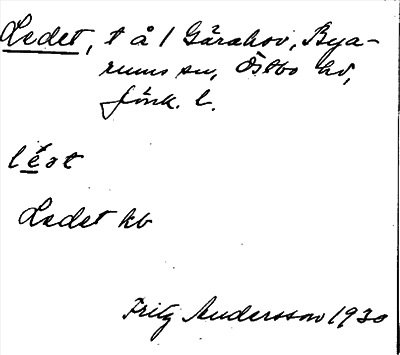 Ledet, t å 1 Gårahov, Bya-
rums sn, Östbo hd,
Jönk. l.
Ledet kb
Fritz Andersson 1930